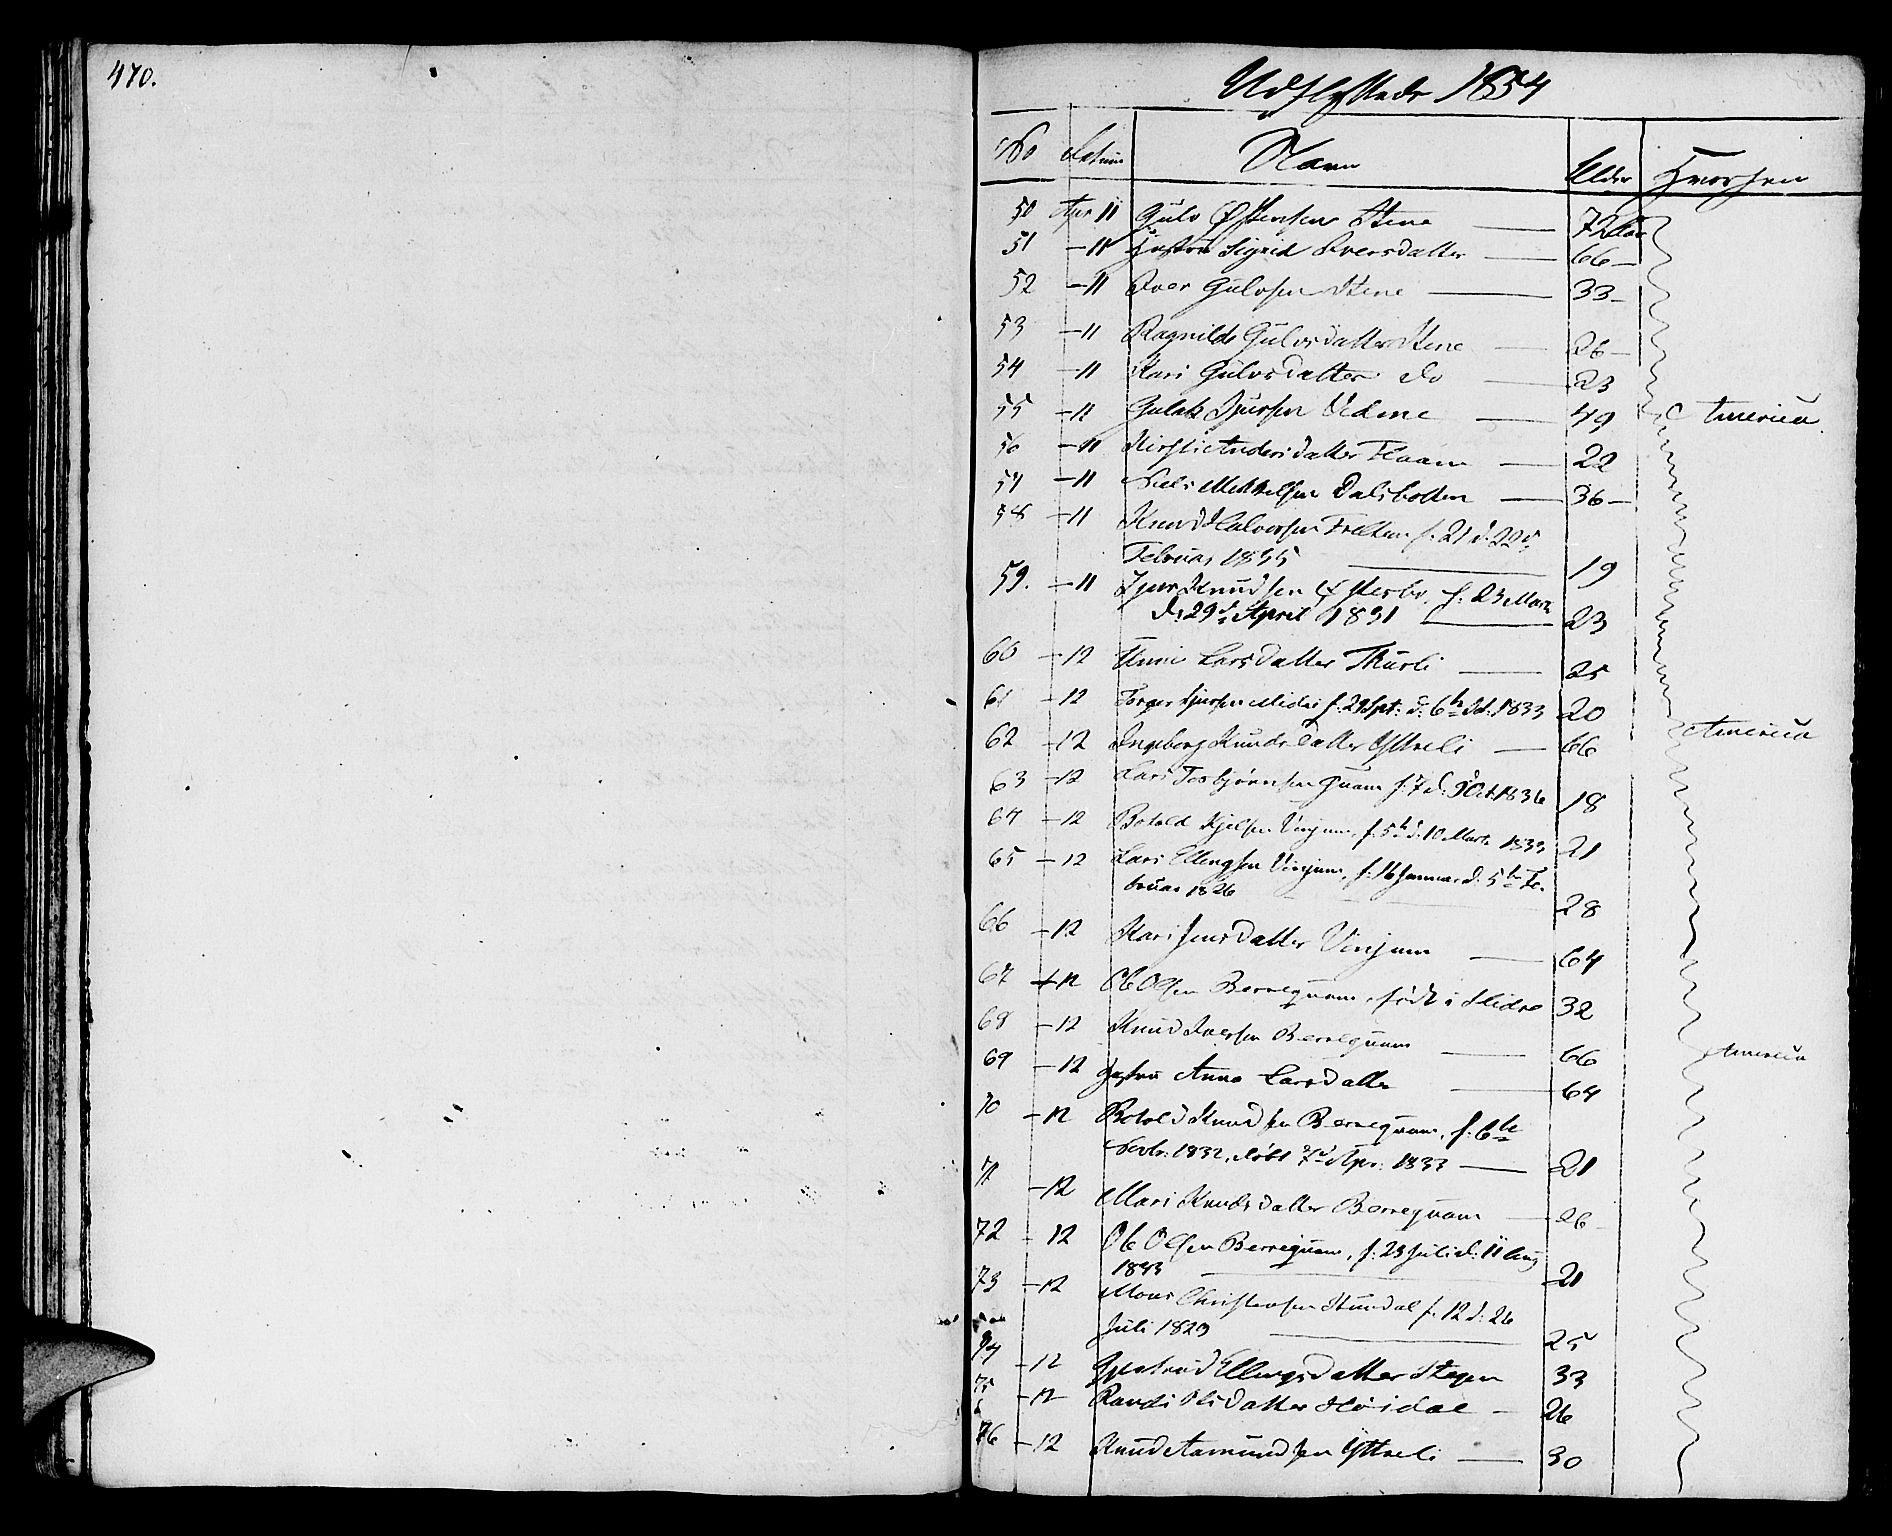 470.
Udflyttede 1854
No Datum Navn Alder Hvorhen
50 Apr 11 Gulv Østensen Stene 72 Aar
51 - 11 Hustru Sigrid Iversdatter 66
52 - 11 Iver Gulvsen Stene 33
53 - 11 Ragnilde Gulvsdatter Stene 26
54 - 11 Kari Gulvsdatter do 23
55 - 11 Gulak Sjursen Vedme 49 America
56 - 11 Kirsti Andersdatter Flaam 22
57 - 11 Niels Mikkelsen Dalsbotten 36
58 - 11 Knud Halvorsen Fretten f: 21 d: 22d
Februar 1835 19
59. - 11 Sjur Knudsen Østerbø, f: 23 Marts
d: 29d April 1831 23
60 - 12 Unni Larsdatter Thurli 25
61 - 12 Torger Sjursen Midie f: 29 Spt: d: 6te Oct: 1833 20
62 - 12 Ingeborg Knudsdatter Yttreli 66 America
63 - 12 Lars Torbjørnsen Qvam f: 7 d: 9 Oct. 1836 18
64 - 12 Botold Kjelsen Vinjum, f: 5te d: 10 Marts 1833 21
65 - 12 Lars Ellingsen Vinjum, f: 16 Januar d: 5te Fe-
bruar 1826 28
66 - 12 Kari Jensdatter Vinjum 64
67 - 12 Ole Olsen Berreqvam, født i Slidre 32
68 - 12 Knud Iversen Berreqvam 66
69 - 12 Hustru Anna Larsdatter 64 America
70 - 12 Botold Knudsen Berreqvam, f: 6te
Novbr: 1832, døbt 7d Apr: 1833 21
71 - 12 Mari Knudsdatter Berreqvam 26
72 - 12 Ole Olsen Berreqvam, f: 23 Juli d: 11 Aug
1833 21
73 - 12 Mons Christensen Stundal f: 12 d: 26
Juli 1829 25
74 - 12 Gjertrud Ellingsdatter Stegen 33
75 - 12 Randi Olsdatter Høidal 26
76 - 12 Knud Aamundsen Yttreli 30